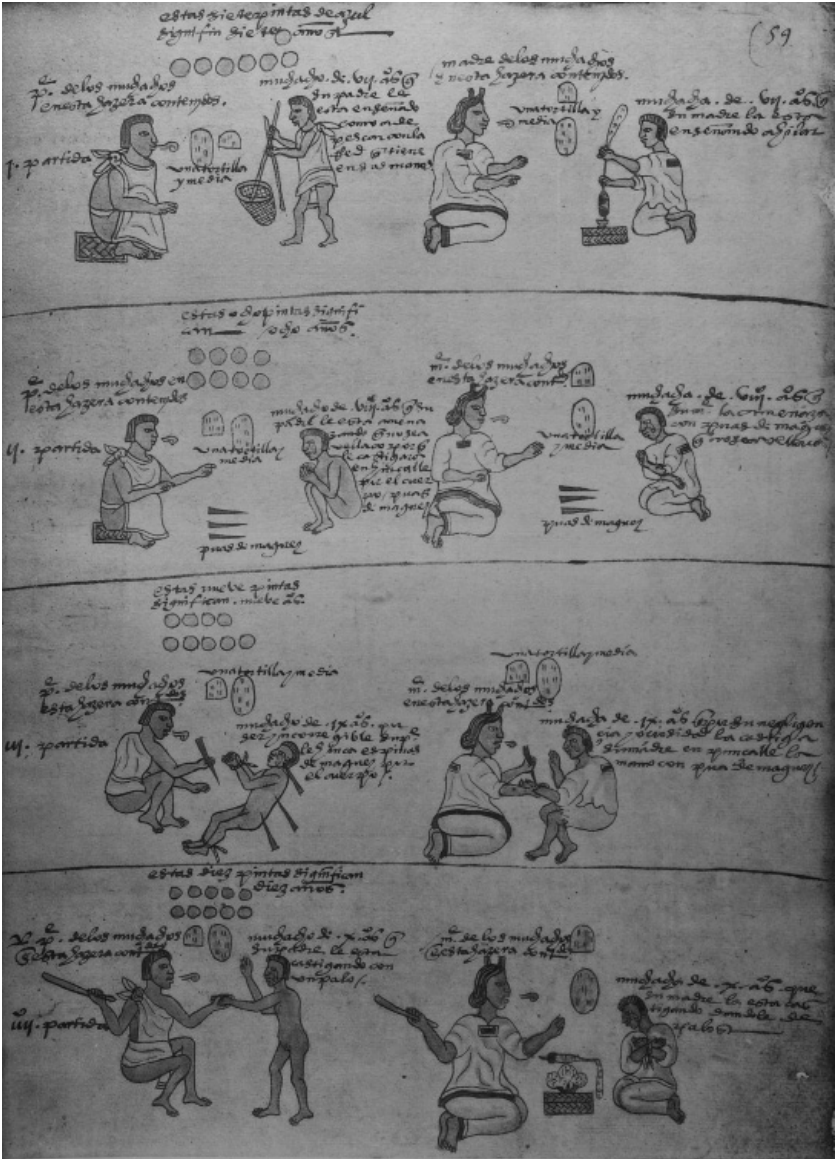 estas siete pintas de azul
significan siete años
(59
pe. de los muchachos
en esta hazera contenidos.
muchacho de. vii. as q̄
su padre le
esta enseñando
como a de
pescar con la
Red q̄ tiene
en las manos
madre de los muchachos
en esta hazera contenidos.
una tortilla y
media
muchacha. de. vii. as q̄
su madre la esta
enseñando a hilar
1. partida
una tortilla
y media
estas ocho pintas signifi
can ocho años.
pe. de los muchachos en
esta hazera contenidos
ii. partida
una tortilla y
media
muchacho de. viii. as q̄ su
padre le esta amena
zando q̄ no sea
vellaco porq̄
le castigara
en hincalle
por el cuer
po / puas
de maguey
puas de maguey
me. de los muchachos
en esta hazera cont.
una tortilla
y media
muchacha. de. viii. as q̄
su me. la amenaza
con puas de maguey
puas de maguey
estas nueve pintas
significan. nueve as.
pe. de los muchachos
esta hazera contenidos
una tortilla y media
iii. partida
muchacho de. ix. as. por
ser yncorregible su pe.
le hinca espinas
de maguey por
el cuerpo /.
una tortilla y media
me. de los muchachos
en esta hazera contenidos
muchacha de. ix. as q̄ por su negligen
cia y ociosidad la castiga
su madre en puncalle la
mano con pua de maguey /
estas diez pintas significan
diez años.
pe. de los muchachos
en esta hazera contenidos
muchacho de. x. as q̄
su padre le esta
castigando con
un palo /.
iiii. partida
me. de los muchachos
en esta hazera contenidos
muchacha de. x. as. que
su madre la esta cas
tigando dandole de
palos